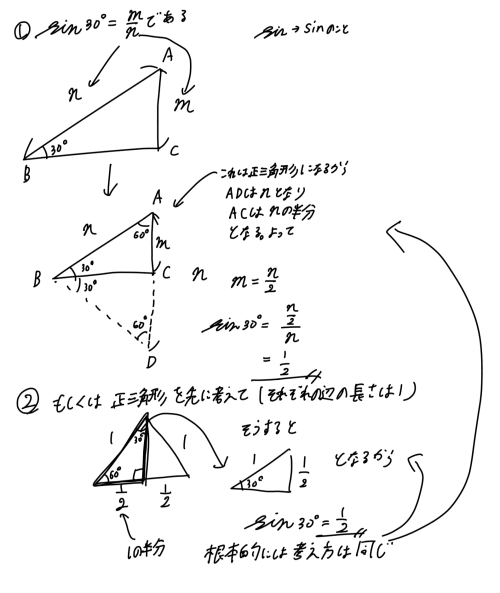 ① sin30°=m/nである
sin→sinのこと
A
n
m
30°
B
C
これは正三角形になるから
ADはnとなり
ACはnの半分
となる。よって
A
n
60°
m
B
30°
30°
C
n
60°
D
m=n/2
sin30°=(n/2)/n
=1/2
② もしくは正三角形を先に考えて(それぞれの辺の長さは1)
そうすると
1
30°
1
60°
1/2
1/2
1の半分
1
30°
1/2
となるから
sin30°=1/2
根本的には考え方は同じ